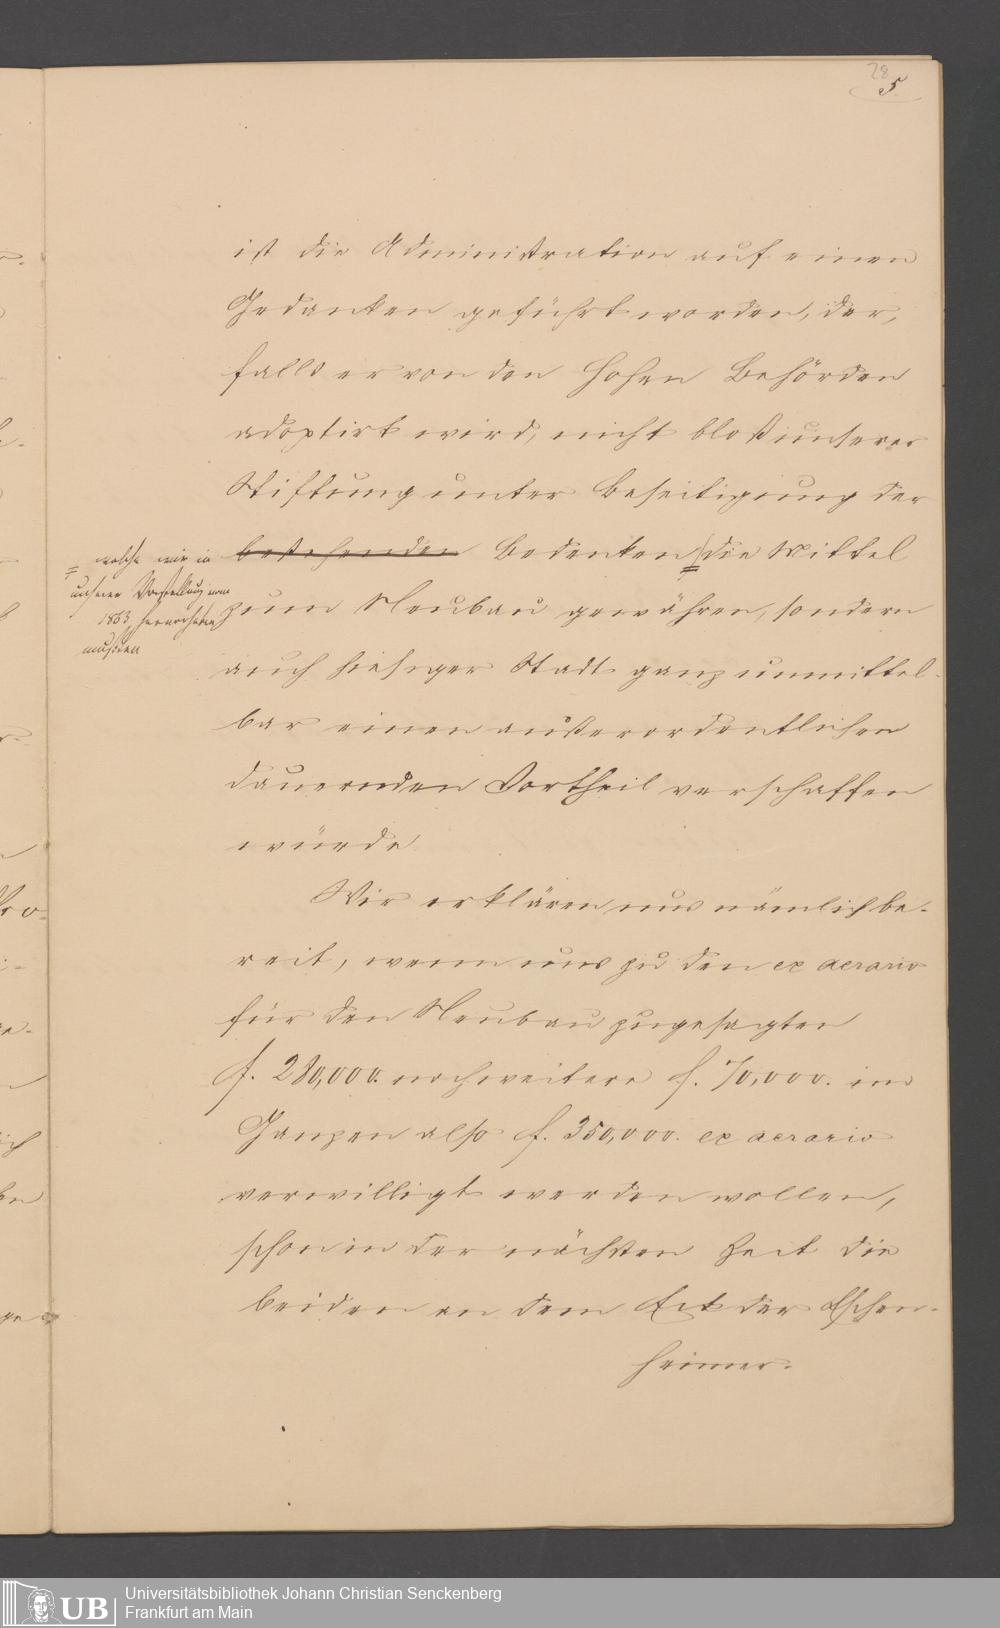 28
5
ist die Administration auf einen
Gedanken geführt worden, der,
falls er von den Hohen Behörden
adoptirt wird, nicht bloß unserer
Stiftung unter Beseitigung der
bestehenden Bedenken die Mittel
= welche wir in
unserer Vorstellung vom
1863 hervorheben
mußten
zum Neubau gewähren, sondern
auch hiesiger Stadt ganz unmittel-
bar einen außerordentlichen
dauernden Vortheil verschaffen
würde
Wir erklären uns nämlich be-
reit, wenn uns zu den ex aerario
für den Neubau zugesagten
f. 280,000. noch weitere f. 70,000. im
Ganzen also f. 350,000. ex aerario
verwilligt werden wollen,
schon in der nächsten Zeit die
beiden an dem Eck der Eschen-
heimer-
UB
Universitätsbibliothek Johann Christian Senckenberg
Frankfurt am Main